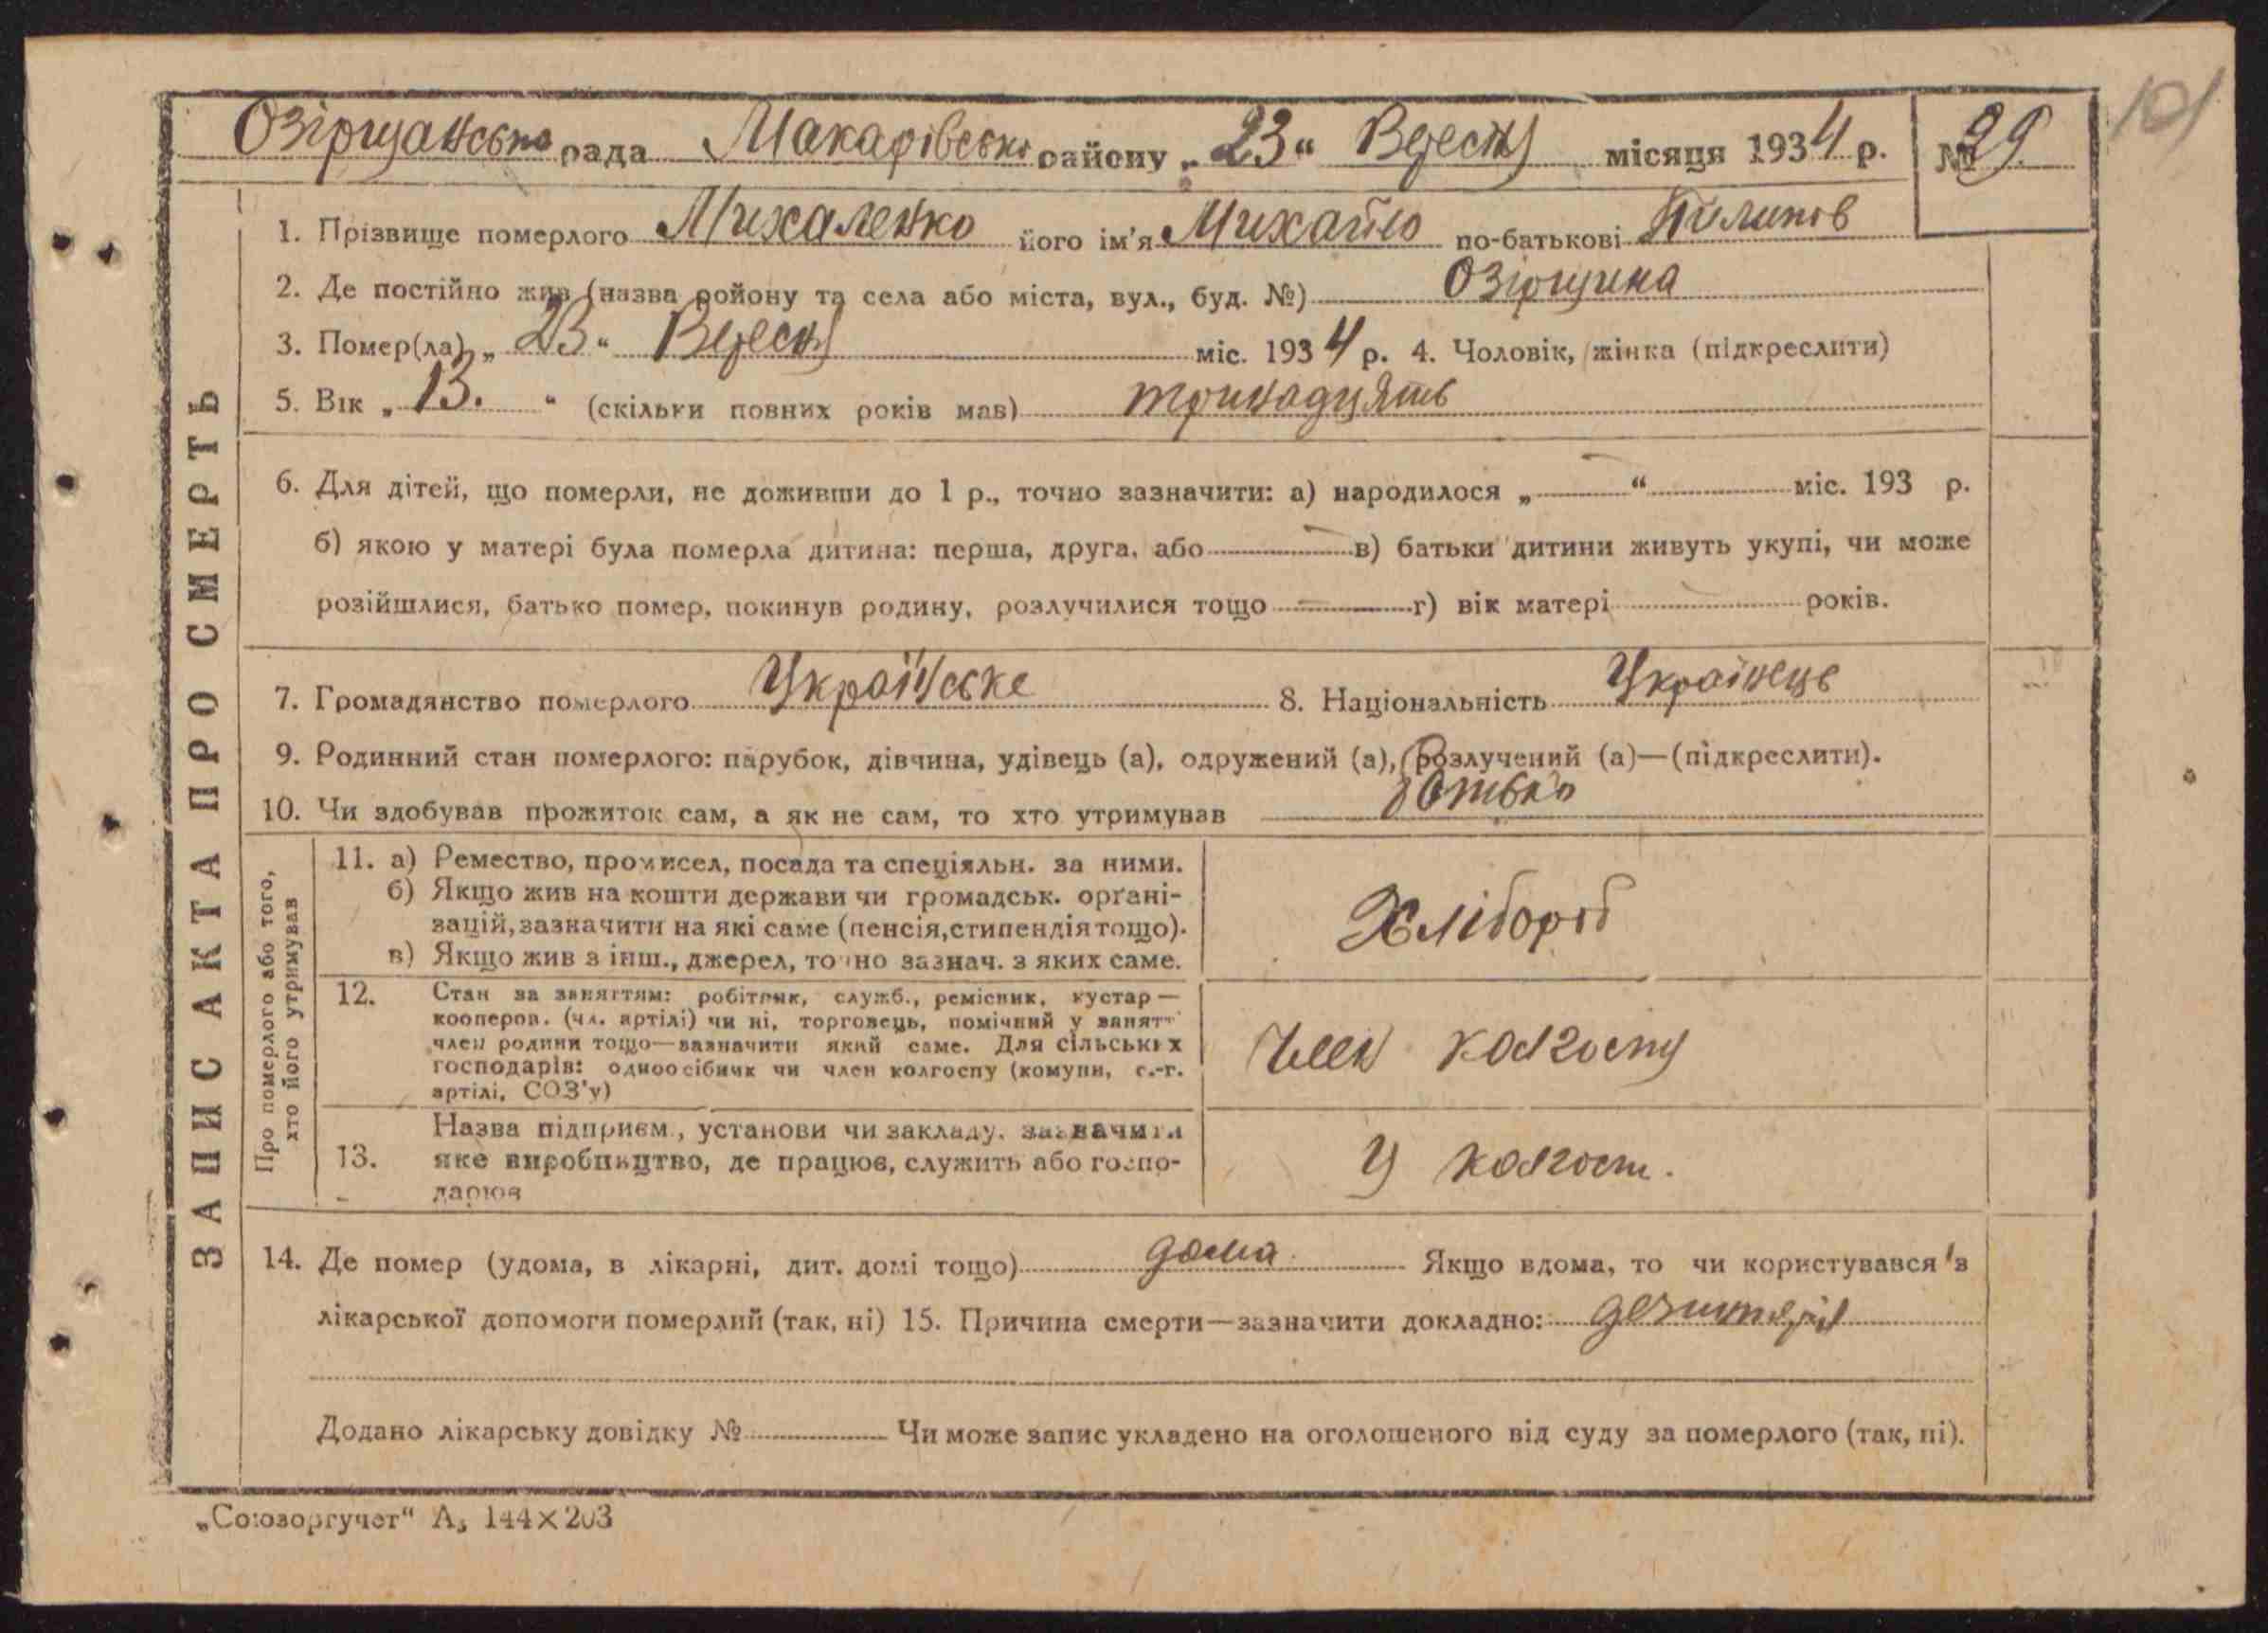 101
Озірщанська рада Макарівсько району „23“ Вересня місяця 1934 р. № 29.
ЗАПИС АКТА ПРО СМЕРТЬ
1. Прізвище померлого Михаленко його ім'я Михайло по-батькові Пилипов
2. Де постійно жив (назва району та села або міста, вул., буд. №) Озірщина
3. Помер(ла) „23“ Вересня міс. 1934 р. 4. Чоловік, жінка (підкреслити)
5. Вік „13.“ (скільки повних років мав) тринадцять
6. Для дітей, що померли, не доживши до 1 р., точно зазначити: а) народилося „ “ міс. 193 р.
б) якою у матері була померла дитина: перша, друга, або в) батьки дитини живуть укупі, чи може
розійшлися, батько помер, покинув родину, розлучилися тощо г) вік матері років.
7. Громадянство померлого Українське 8. Національність Українець
9. Родинний стан померлого: парубок, дівчина, удівець (а), одружений (а), розлучений (а)—(підкреслити).
10. Чи здобував прожиток сам, а як не сам, то хто утримував батько
Про померлого або того,
хто його утримував
11. а) Ремество, промисел, посада та спеціяльн. за ними.
б) Якщо жив на кошти держави чи громадськ. орґані-
зацій, зазначити на які саме (пенсія, стипендія тощо).
в) Якщо жив з інш., джерел, точно зазнач. з яких саме.
Хлібороб
12. Стан за заняттям: робітник, служб., ремісник, кустар—
кооперов. (чл. артілі) чи ні, торговець, помічний у занятт
член родини тощо—зазначити який саме. Для сільських
господарів: одноосібник чи член колгоспу (комуни, с.-г.
артілі, СОЗ'у)
Член колгоспу
13. Назва підприєм., установи чи закладу, зазначити
яке виробництво, де працює, служить або госпо-
дарюв
У колгосп.
14. Де помер (удома, в лікарні, дит. домі тощо) дома. Якщо вдома, то чи користувався з
лікарської допомоги померлий (так, ні) 15. Причина смерти—зазначити докладно:
Додано лікарську довідку № Чи може запис укладено на оголошеного від суду за померлого (так, ні).
„Союзоргучет“ А₅ 144×203